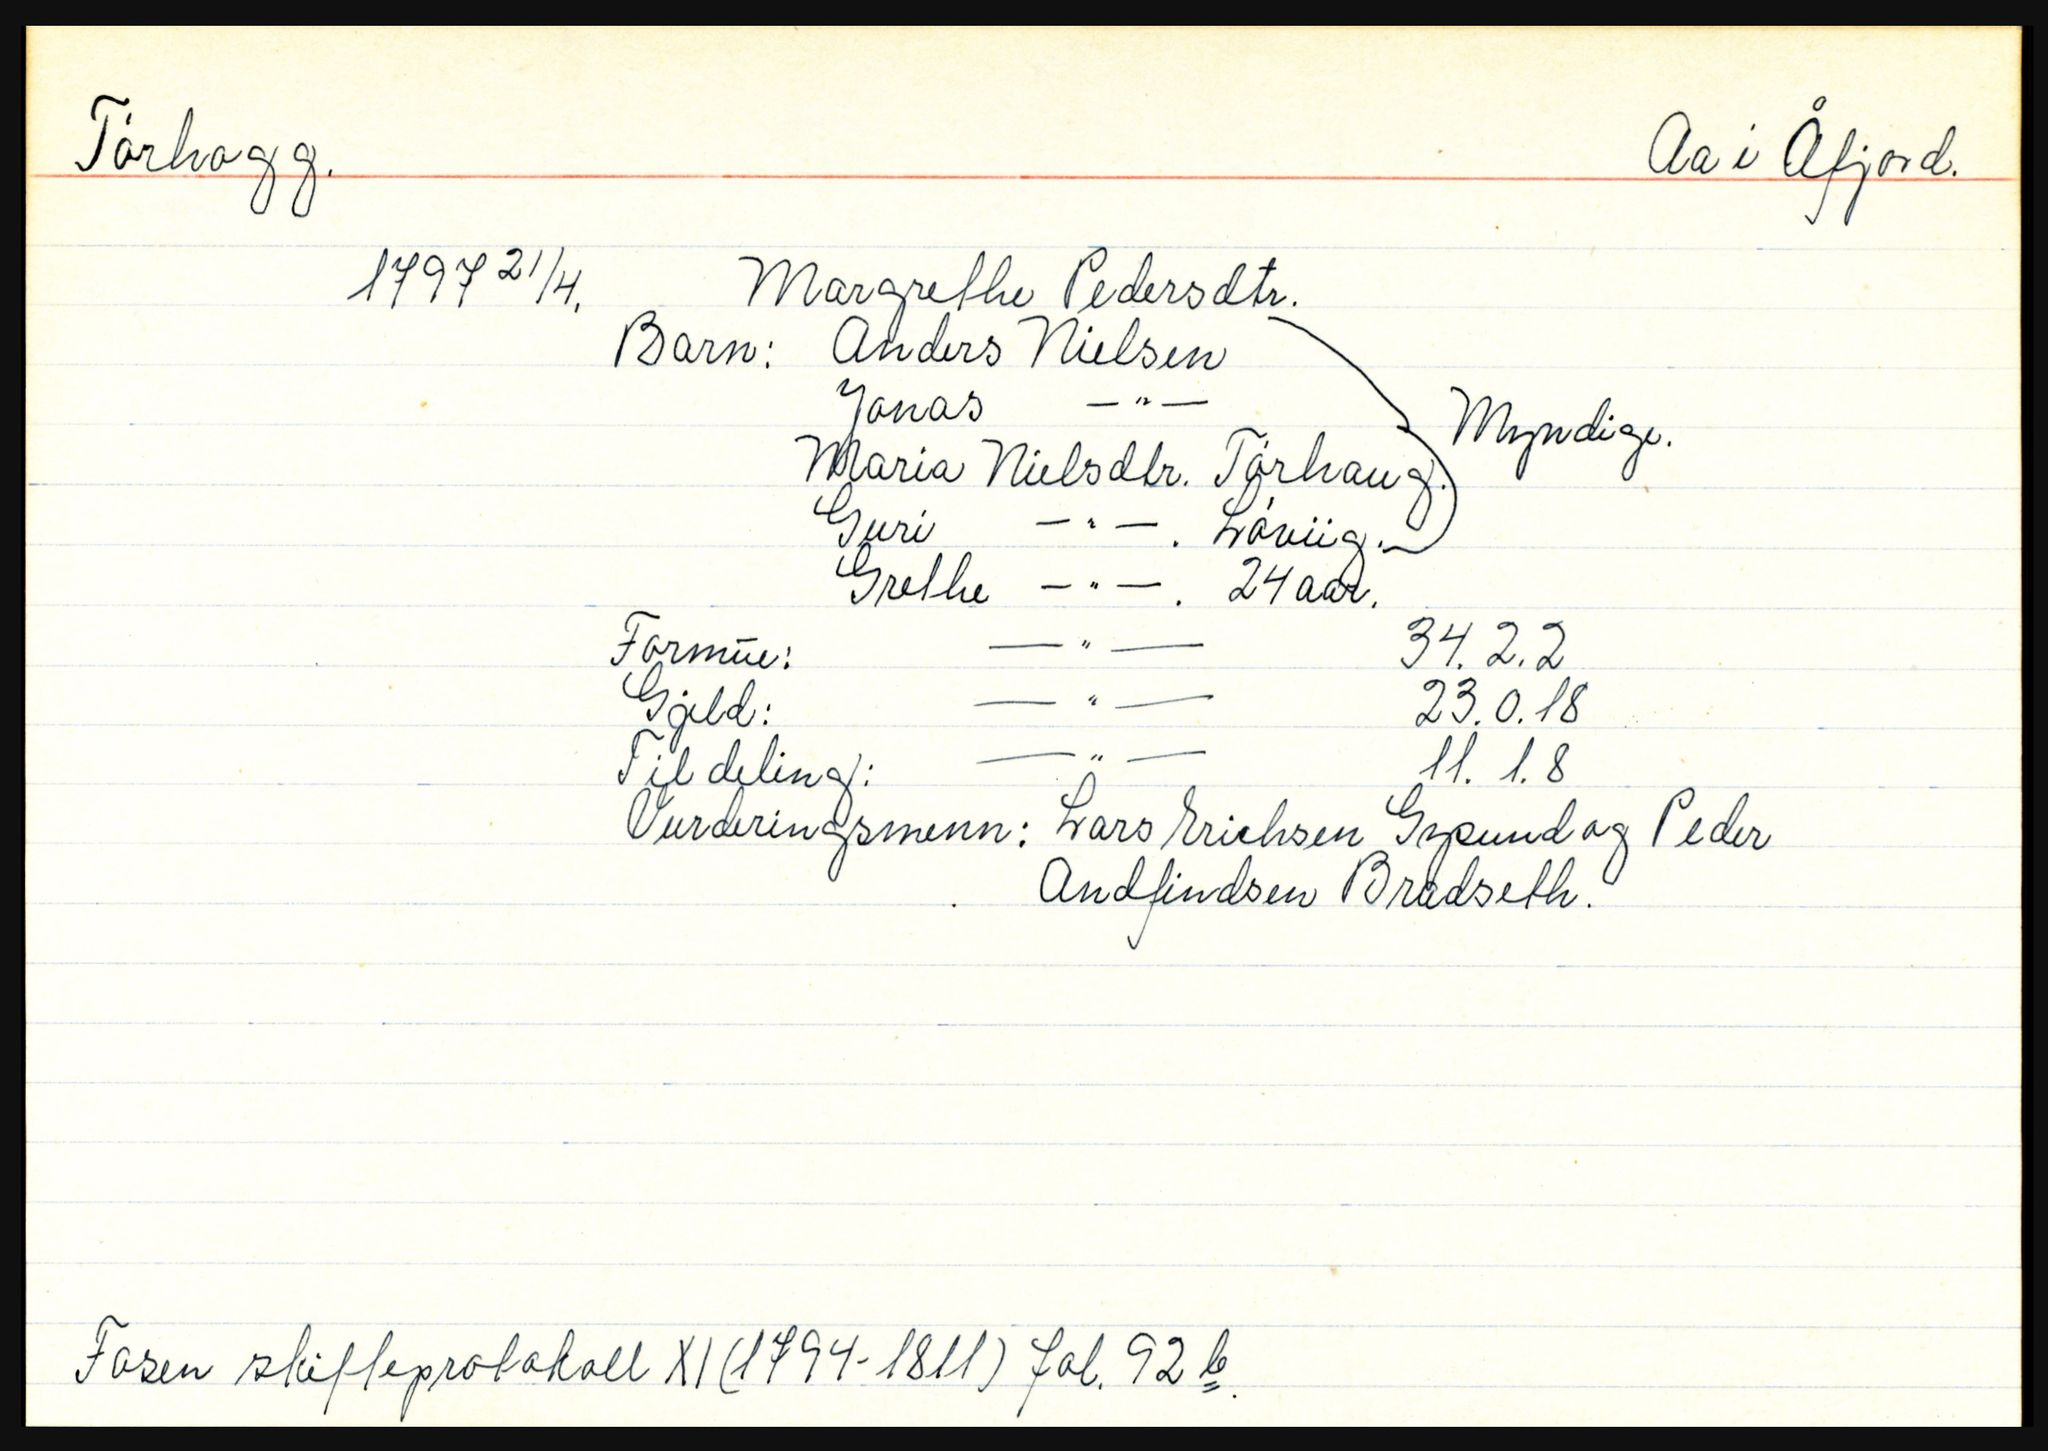 Tórhogg. Aa i Åfjord.
1797 21/4. Margrethe Pedersdtr.
Barn: Anders Nielsen
Jonas —"—
Myndige.
Maria Nielsdtr. Tórhaug.
Guri —"—. Lóviig.
Grethe —"—. 24 aar.
Formūe: —"— 34. 2. 2
Gjeld: —"— 23. 0. 18
Til deling: —"— 11. 1. 8
Vurderingsmenn: Lars Erichsen Gypund og Peder
Andfindsen Bradseth.
Fosen skifteprotokoll XI (1794-1811) fol. 92 b.